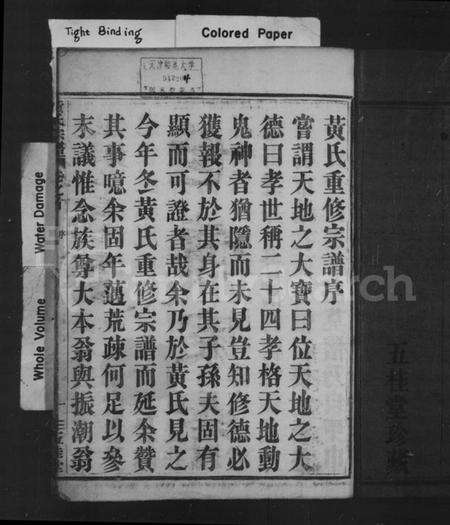 Tight Binding
Colored Paper
Water Damage
Whole Volume
黃氏重修宗譜序
嘗謂天地之大寶曰位天地之大
德曰孝世稱二十四孝格天地動
鬼神者猶隱而未見豈知修德必
獲報不於其身在其子孫夫固有
顯而可證者哉余乃於黃氏見之
今年冬黃氏重修宗譜而延余贊
其事噫余固年邁荒疎何足以參
末議惟念族尊大本翁與振潮翁
五桂堂珍藏